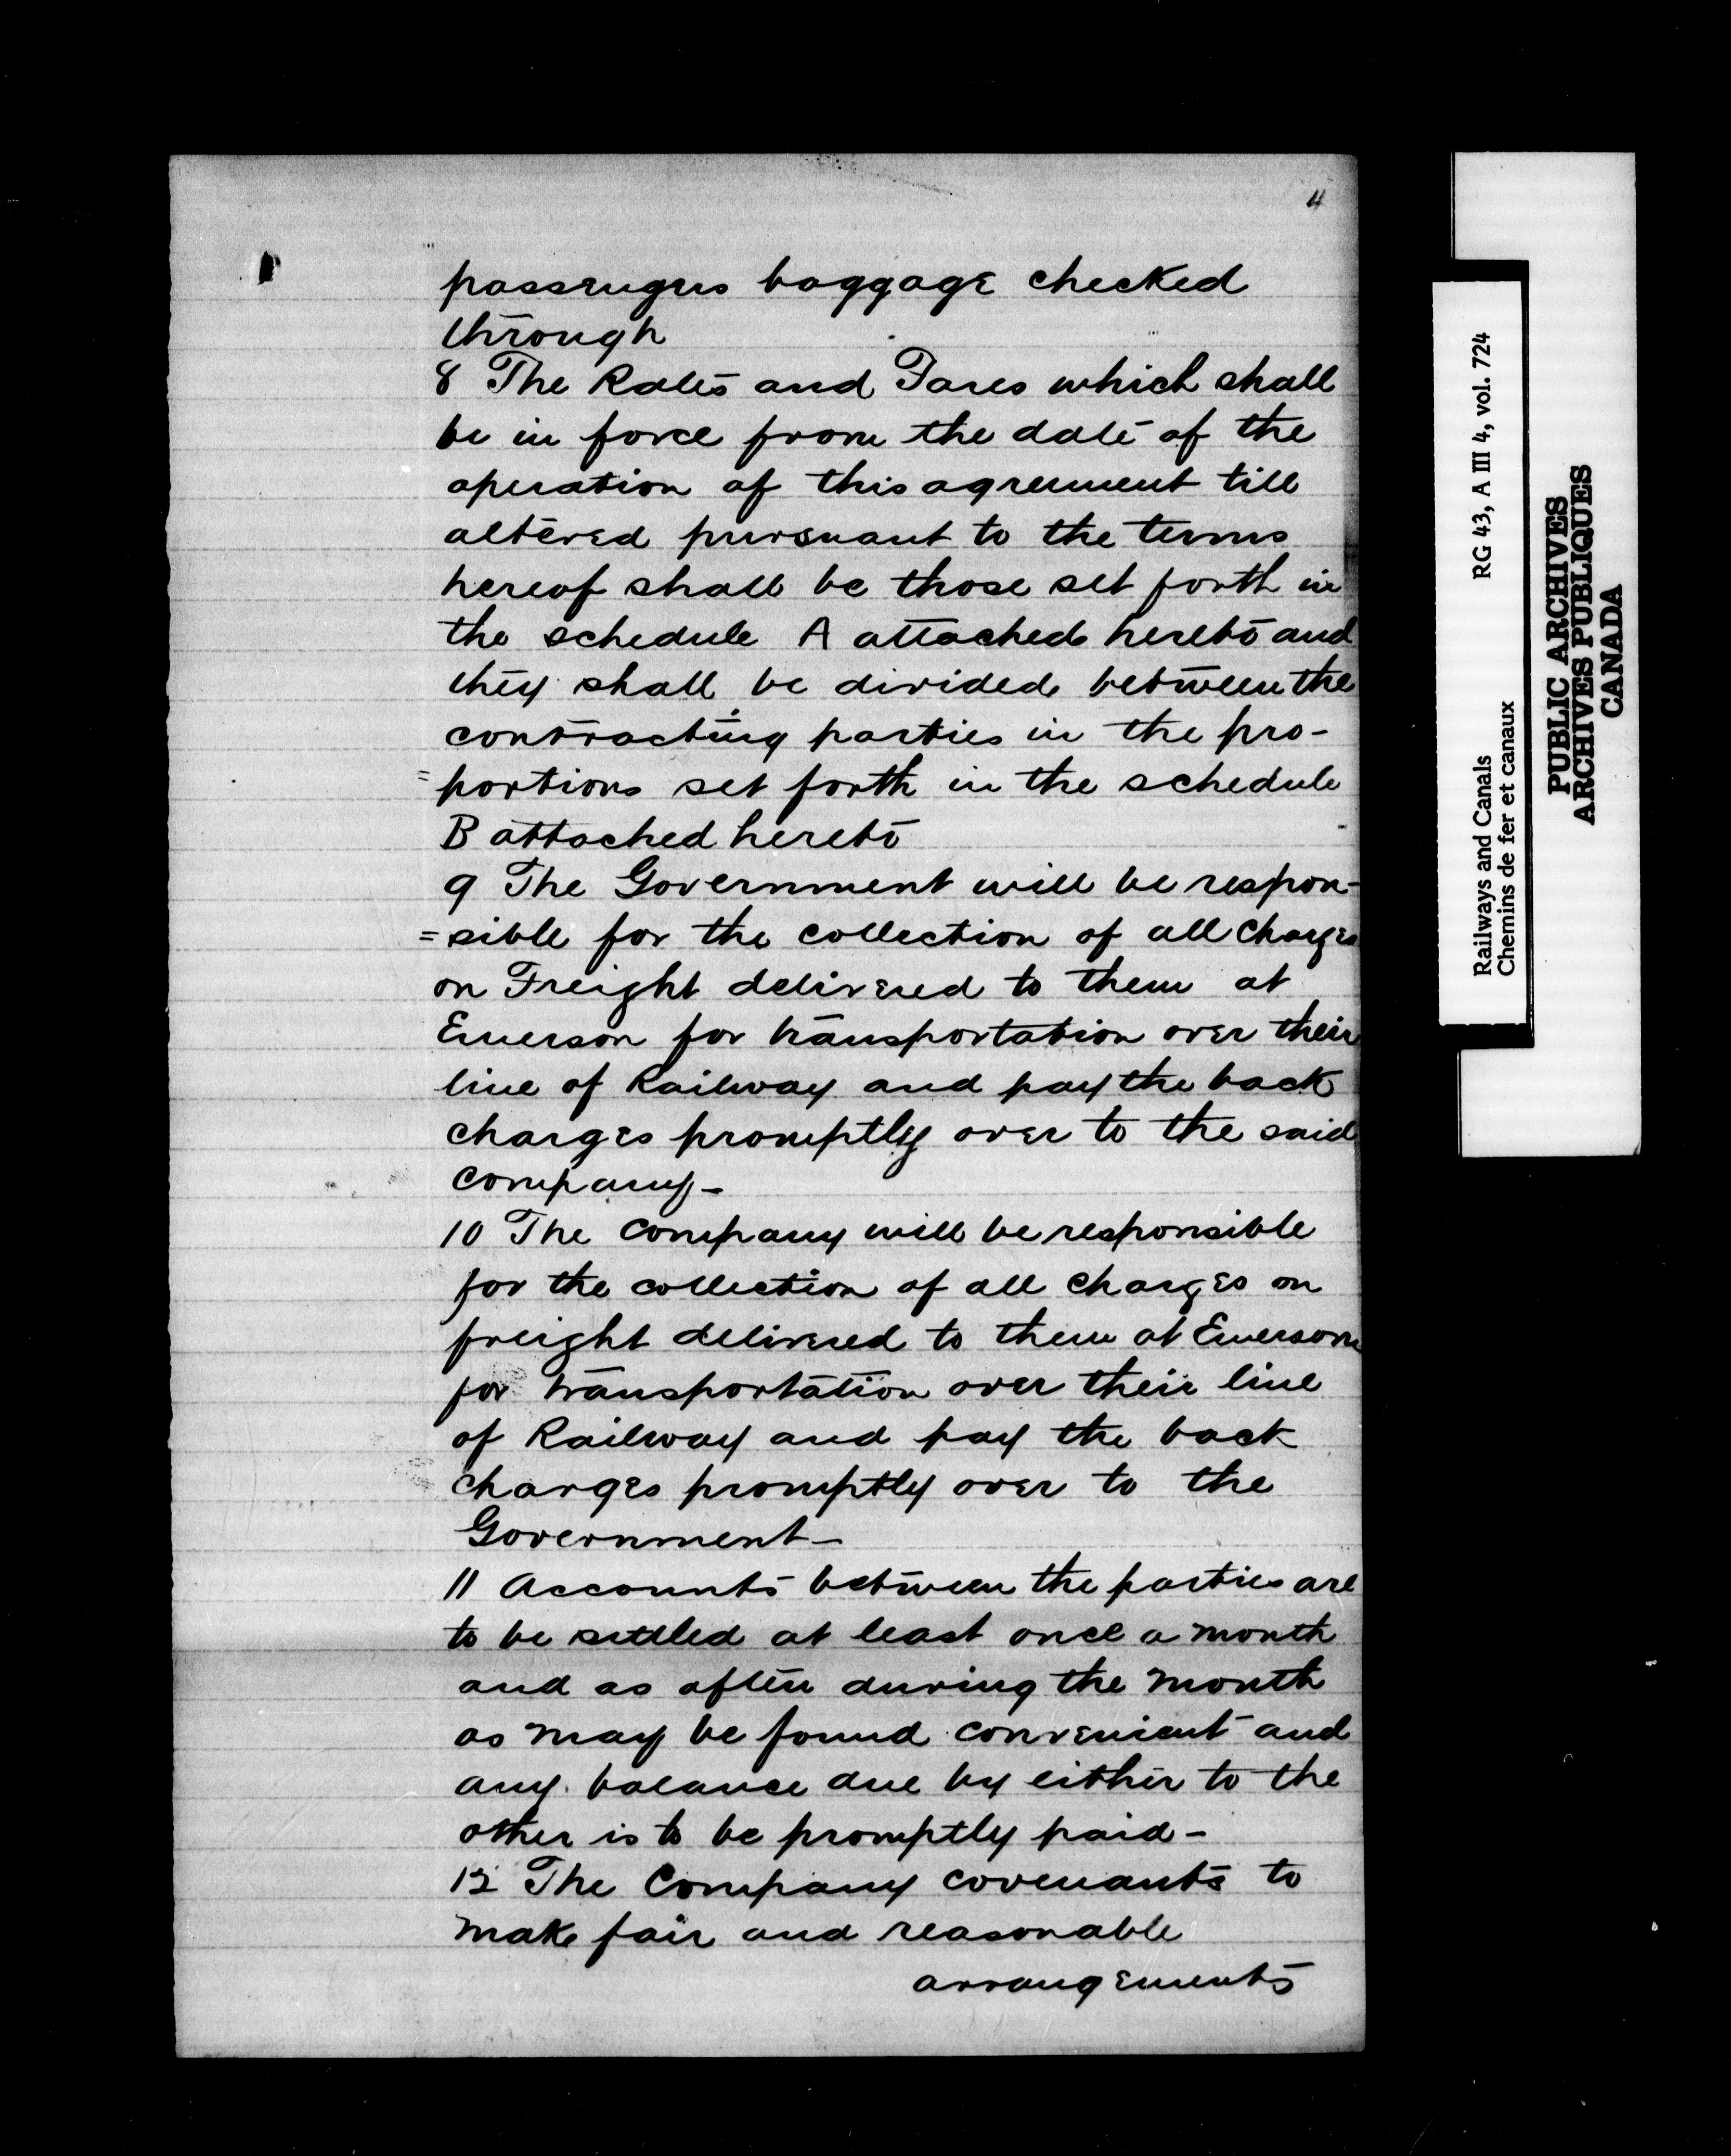 4
passengers baggage checked
through
8 The Rates and Fares which shall
be in force from the date of the
operation of this agreement till
altered pursuant to the terms
hereof shall be those set forth in
the schedule A attached hereto and
they shall be divided between the
contracting parties in the pro-
=portions set forth in the schedule
B attached hereto
9 The Government will be respon-
=sible for the collection of all charges
on Freight delivered to them at
Emerson for transportation over their
line of Railway and pay the back
charges promptly over to the said
company-
10 The Company will be responsible
for the collection of all charges on
freight delivered to them at Emerson
for transportation over their line
of Railway and pay the back
charges promptly over to the
Government-
11 Accounts between the parties are
to be settled at least once a month
and as often during the month
as may be found convenient and
any balance due by either to the
other is to be promptly paid-
12 The Company covenants to
make fair and reasonable
arrangements
Railways and Canals RG 43, A III 4, vol. 724
Chemins de fer et canaux
PUBLIC ARCHIVES
ARCHIVES PUBLIQUES
CANADA